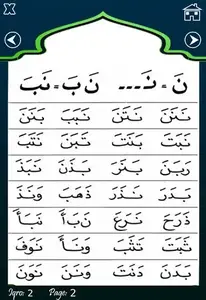 نَ = نَـ... نَ بَ = نَبَ
نَنَنَ نَتَنَ نَبَبَ بَنَنَ
نَبَتَ بَنَتَ تَبَنَ نَتَبَ
رَبَنَ بَنَرَ بَذَنَ نَبَذَ
بَدَرَ نَذَرَ ذَهَبَ وَنَذَ
ذَرَحَ نَزَعَ
ثَبَتَ وَنَأَ نَوَفَ
بَدَنَ دَنَتَ نَوَنَ
Iqro: 2 Page: 2